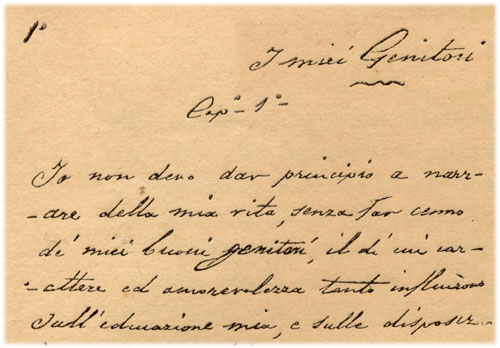 1º
I miei Genitori
Cap.º 1º
Io non devo dar principio a narr-
-are della mia vita, senza far cenno
de' miei buoni genitori, il di cui car-
-attere ed amorevolezza tanto influirono
sull'educazione mia, e sulle disposiz-